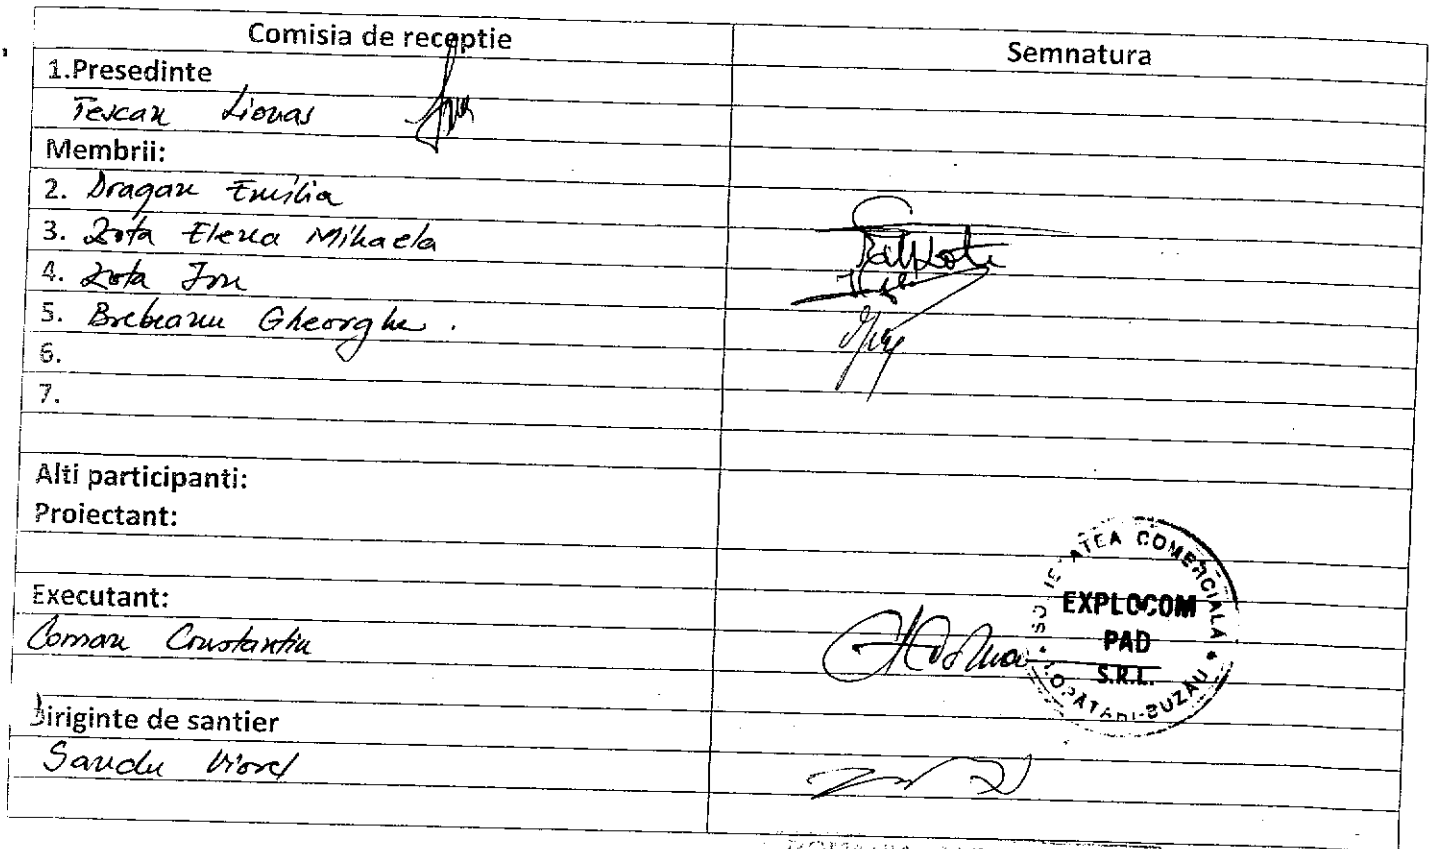 Comisia de receptie
Semnatura
1.Presedinte
Tescan Lionas
Membrii:
2. Dragan Emilia
3. Zota Elena Mihaela
4. Zota Ion
5. Brebeanu Gheorghe.
6.
7.
Alti participanti:
Proiectant:
Executant:
Coman Constantin
SOCIETATEA COMERCIALA
EXPLOCOM
PAD
S.R.L.
LOPATARI-BUZAU
Diriginte de santier
Sandu Viorel